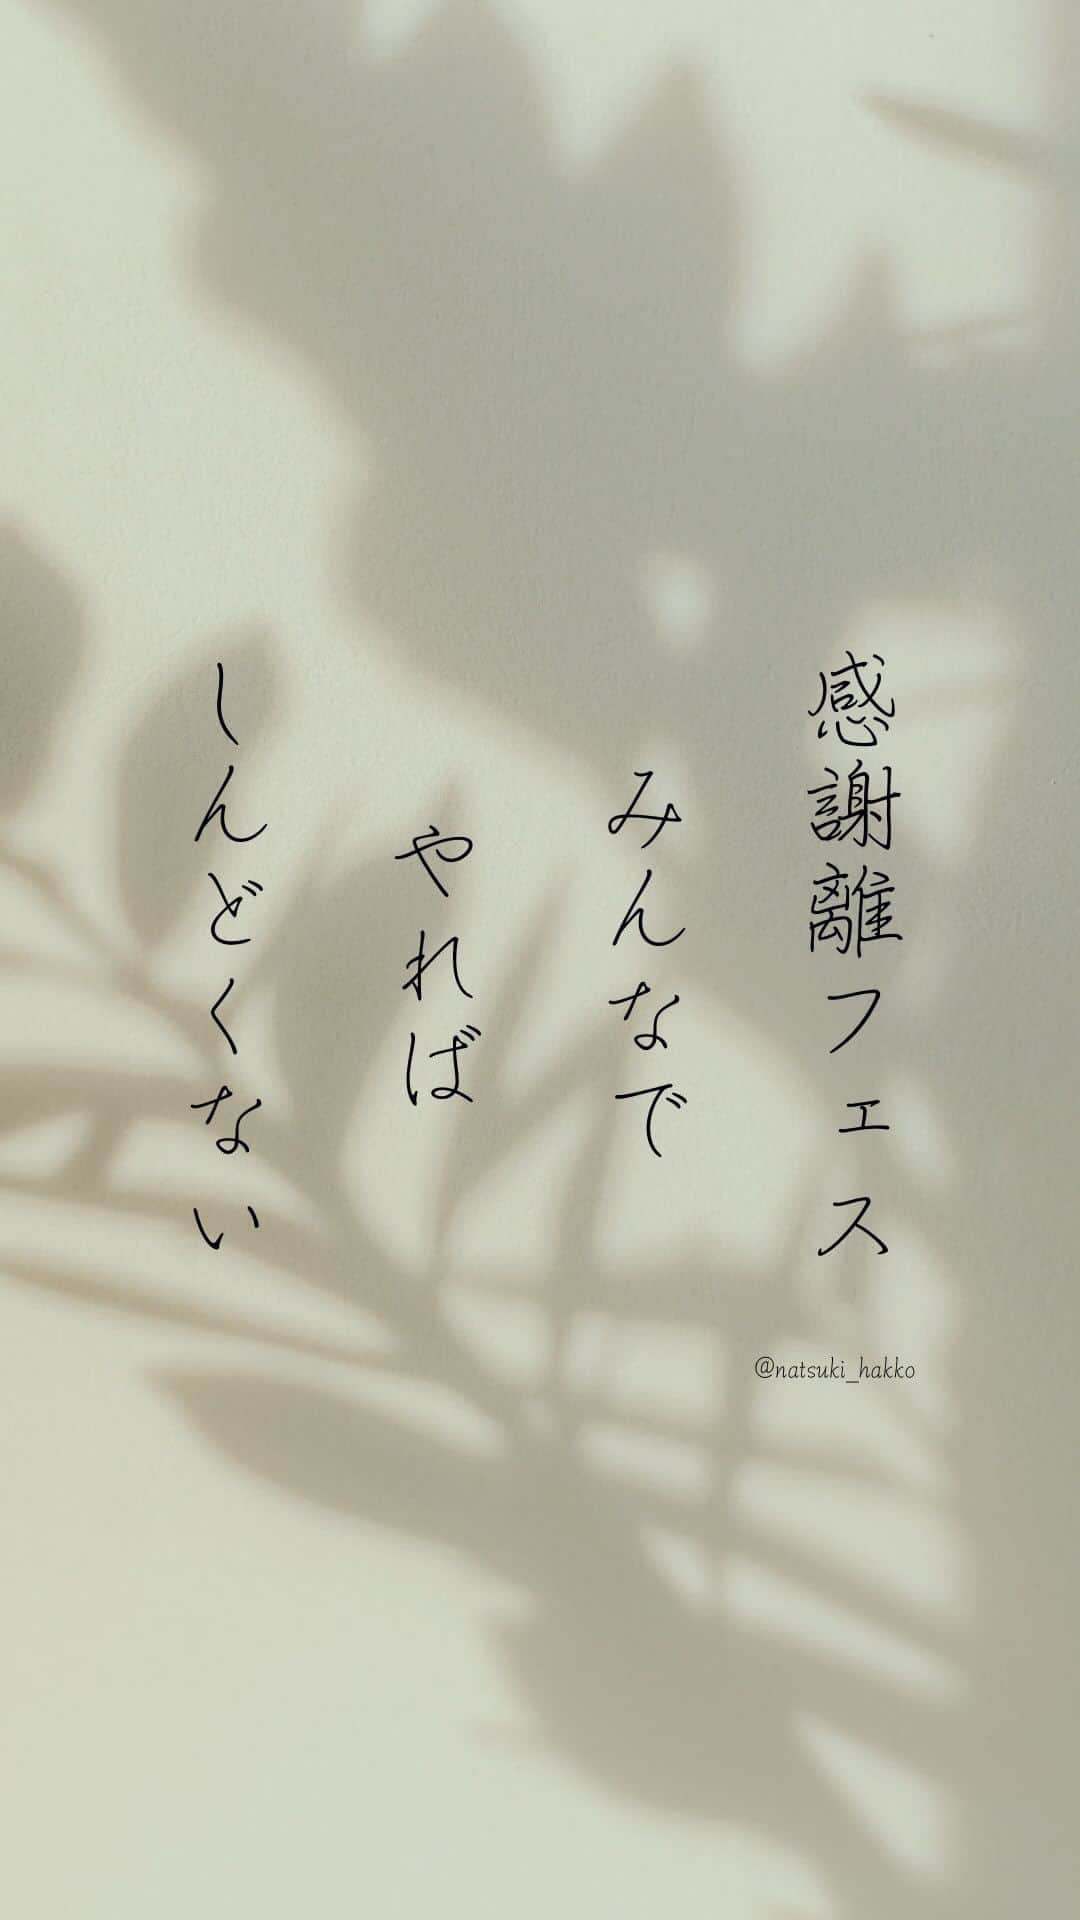 感謝離フェス
みんなで
やれば
しんどくない
@natsuki_hakko